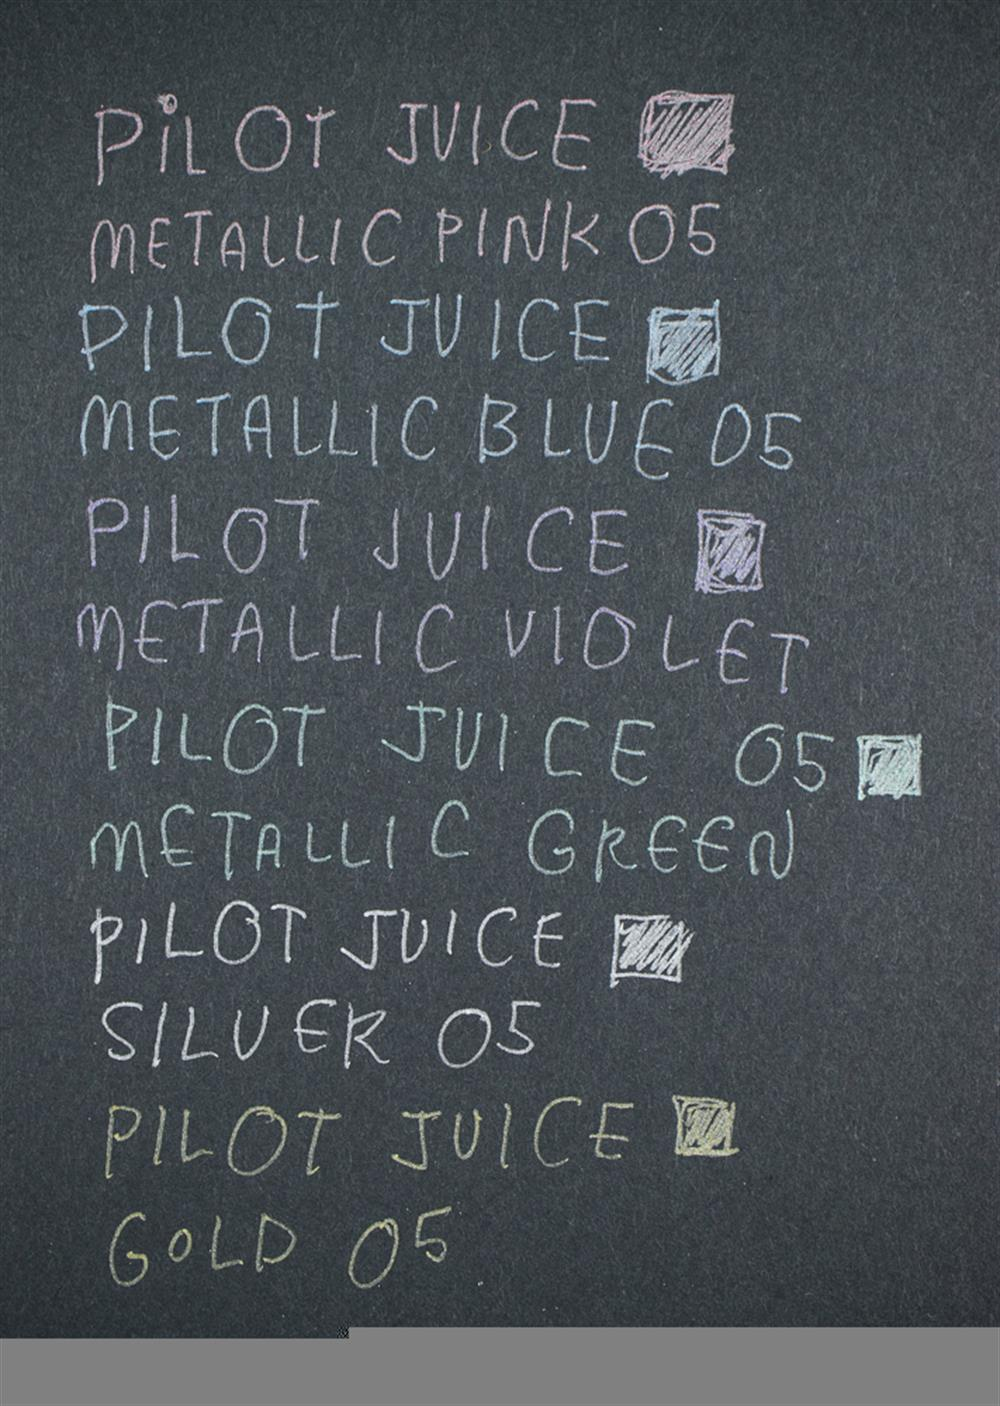 PiLOT JUICE
METALLIC PINK 05
PILOT JUICE
METALLIC BLUE 05
PILOT JUICE
METALLIC VIOLET
PILOT JUICE 05
METALLIC GREEN
PILOT JUICE
SILVER 05
PILOT JUICE
GOLD 05